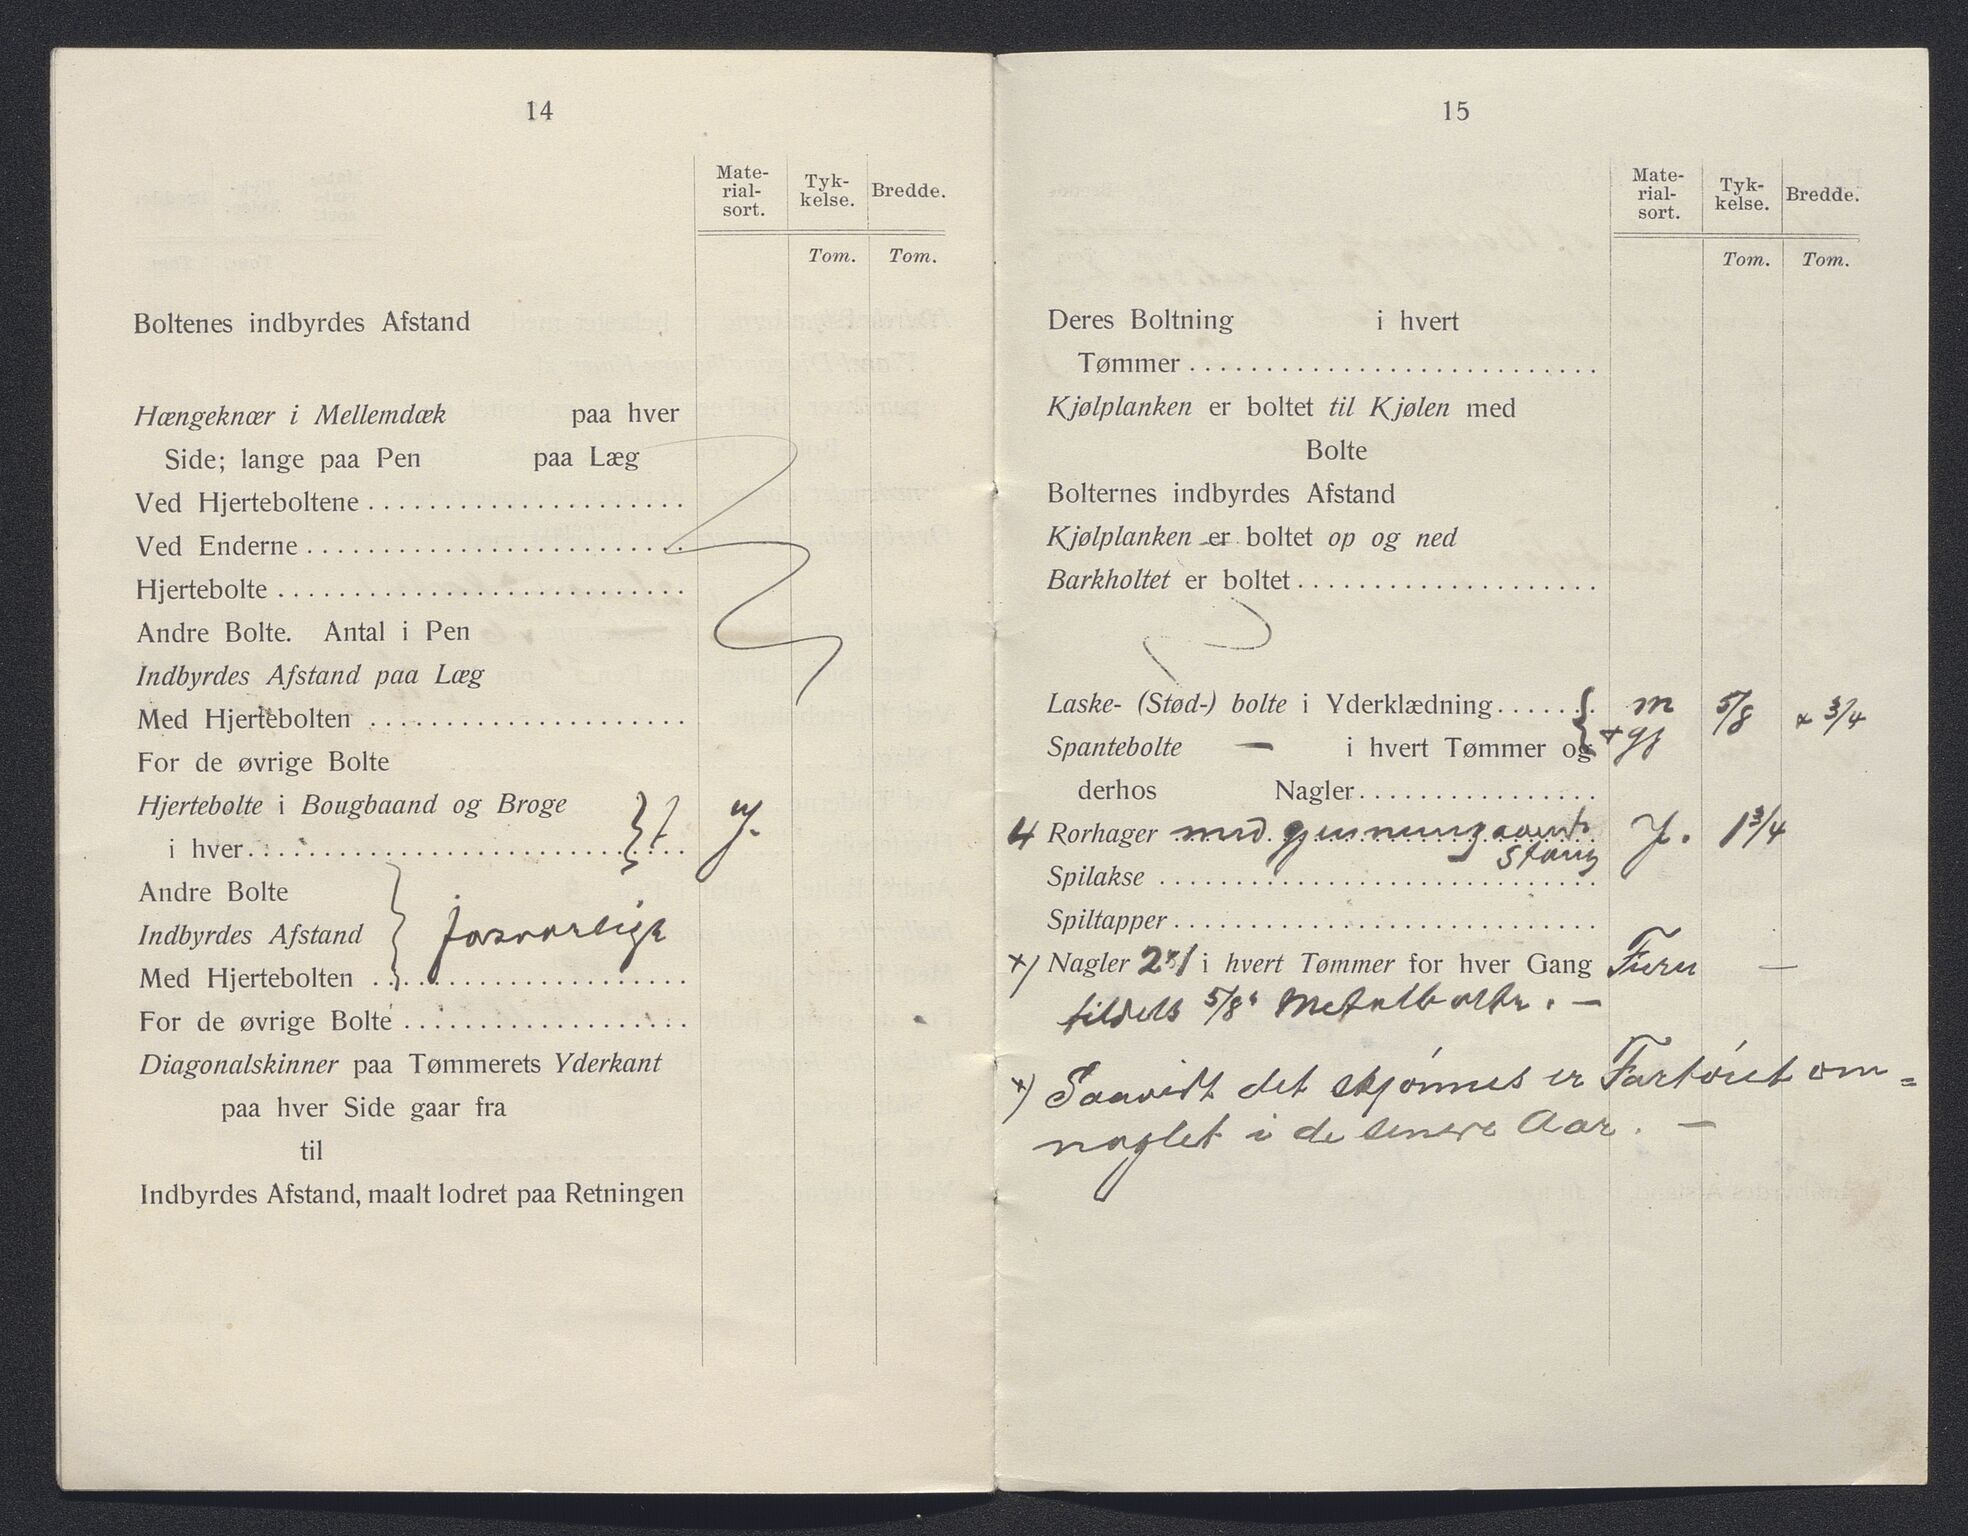 14
Mate-
rial-
sort.
Tyk-
kelse.
Bredde.
Tom.
Tom.
Boltenes indbyrdes Afstand
Hængeknær i Mellemdæk paa hver
Side; lange paa Pen paa Læg
Ved Hjerteboltene
Ved Enderne
Hjertebolte
Andre Bolte. Antal i Pen
Indbyrdes Afstand paa Læg
Med Hjertebolten
For de øvrige Bolte
Hjertebolte i Bougbaand og Broge
i hver
Andre Bolte
Indbyrdes Afstand forsvarlige
Med Hjertebolten
For de øvrige Bolte
Diagonalskinner paa Tømmerets Yderkant
paa hver Side gaar fra
til
Indbyrdes Afstand, maalt lodret paa Retningen
15
Mate-
rial-
sort.
Tyk-
kelse.
Bredde.
Tom.
Tom.
Deres Boltning i hvert
Tømmer
Kjølplanken er boltet til Kjølen med
Bolte
Bolternes indbyrdes Afstand
Kjølplanken er boltet op og ned
Barkholtet er boltet
Laske- (Stød-) bolte i Yderklædning m 5/8 x 3/4
Spantebolte — i hvert Tømmer og + gj
derhos Nagler
4 Rorhager med gjennemgaaende J. 1 3/4
stang
Spilakse
Spiltapper
x) Nagler 2 & 1 i hvert Tømmer for hver Gang Furu —
tildels 5/8" Metalbolte. —
x) Saavidt det skjønnes er Fartøiet om=
naglet i de senere Aar. —